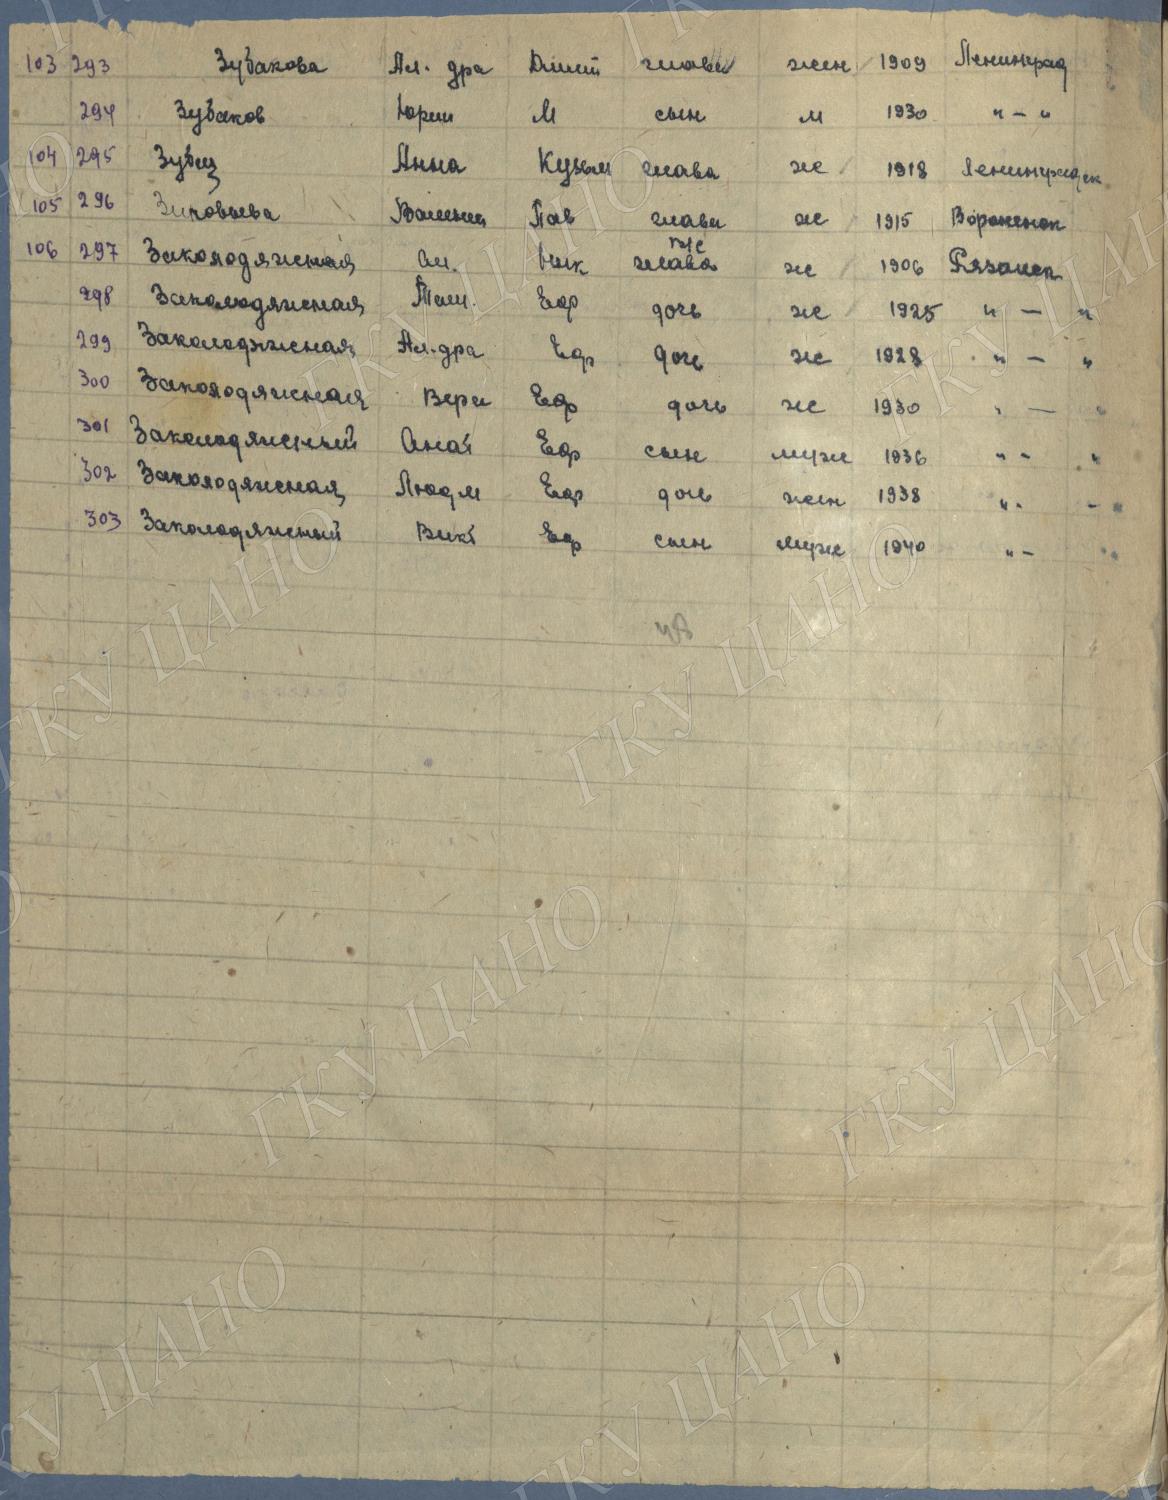 103 293 Зубакова Ал. дра Дмит глава жен 1909 Ленинград
294 Зубаков Юрий М сын м 1930 " — "
104 295 Зубец Анна Кузьм глава ж 1918 Ленинградск
105 296 Зиновьева Валент Пав глава ж 1915 Воронежск
106 297 Заколодяжная Ник глава ж 1906 Рязанск
298 Заколодяжная Ефр дочь ж 1925 " — "
299 Заколодяжная Ал.дра Ефр дочь ж 1928 " — "
300 Заколодяжная Вера Ефр дочь ж 1930 " — "
301 Заколодяжный Анат Ефр сын муж 1936 " - "
302 Заколодяжная Людм Ефр дочь жен 1938 " - "
303 Заколодяжный Викт Ефр сын муж 1940 " - "
ГКУ ЦАНО